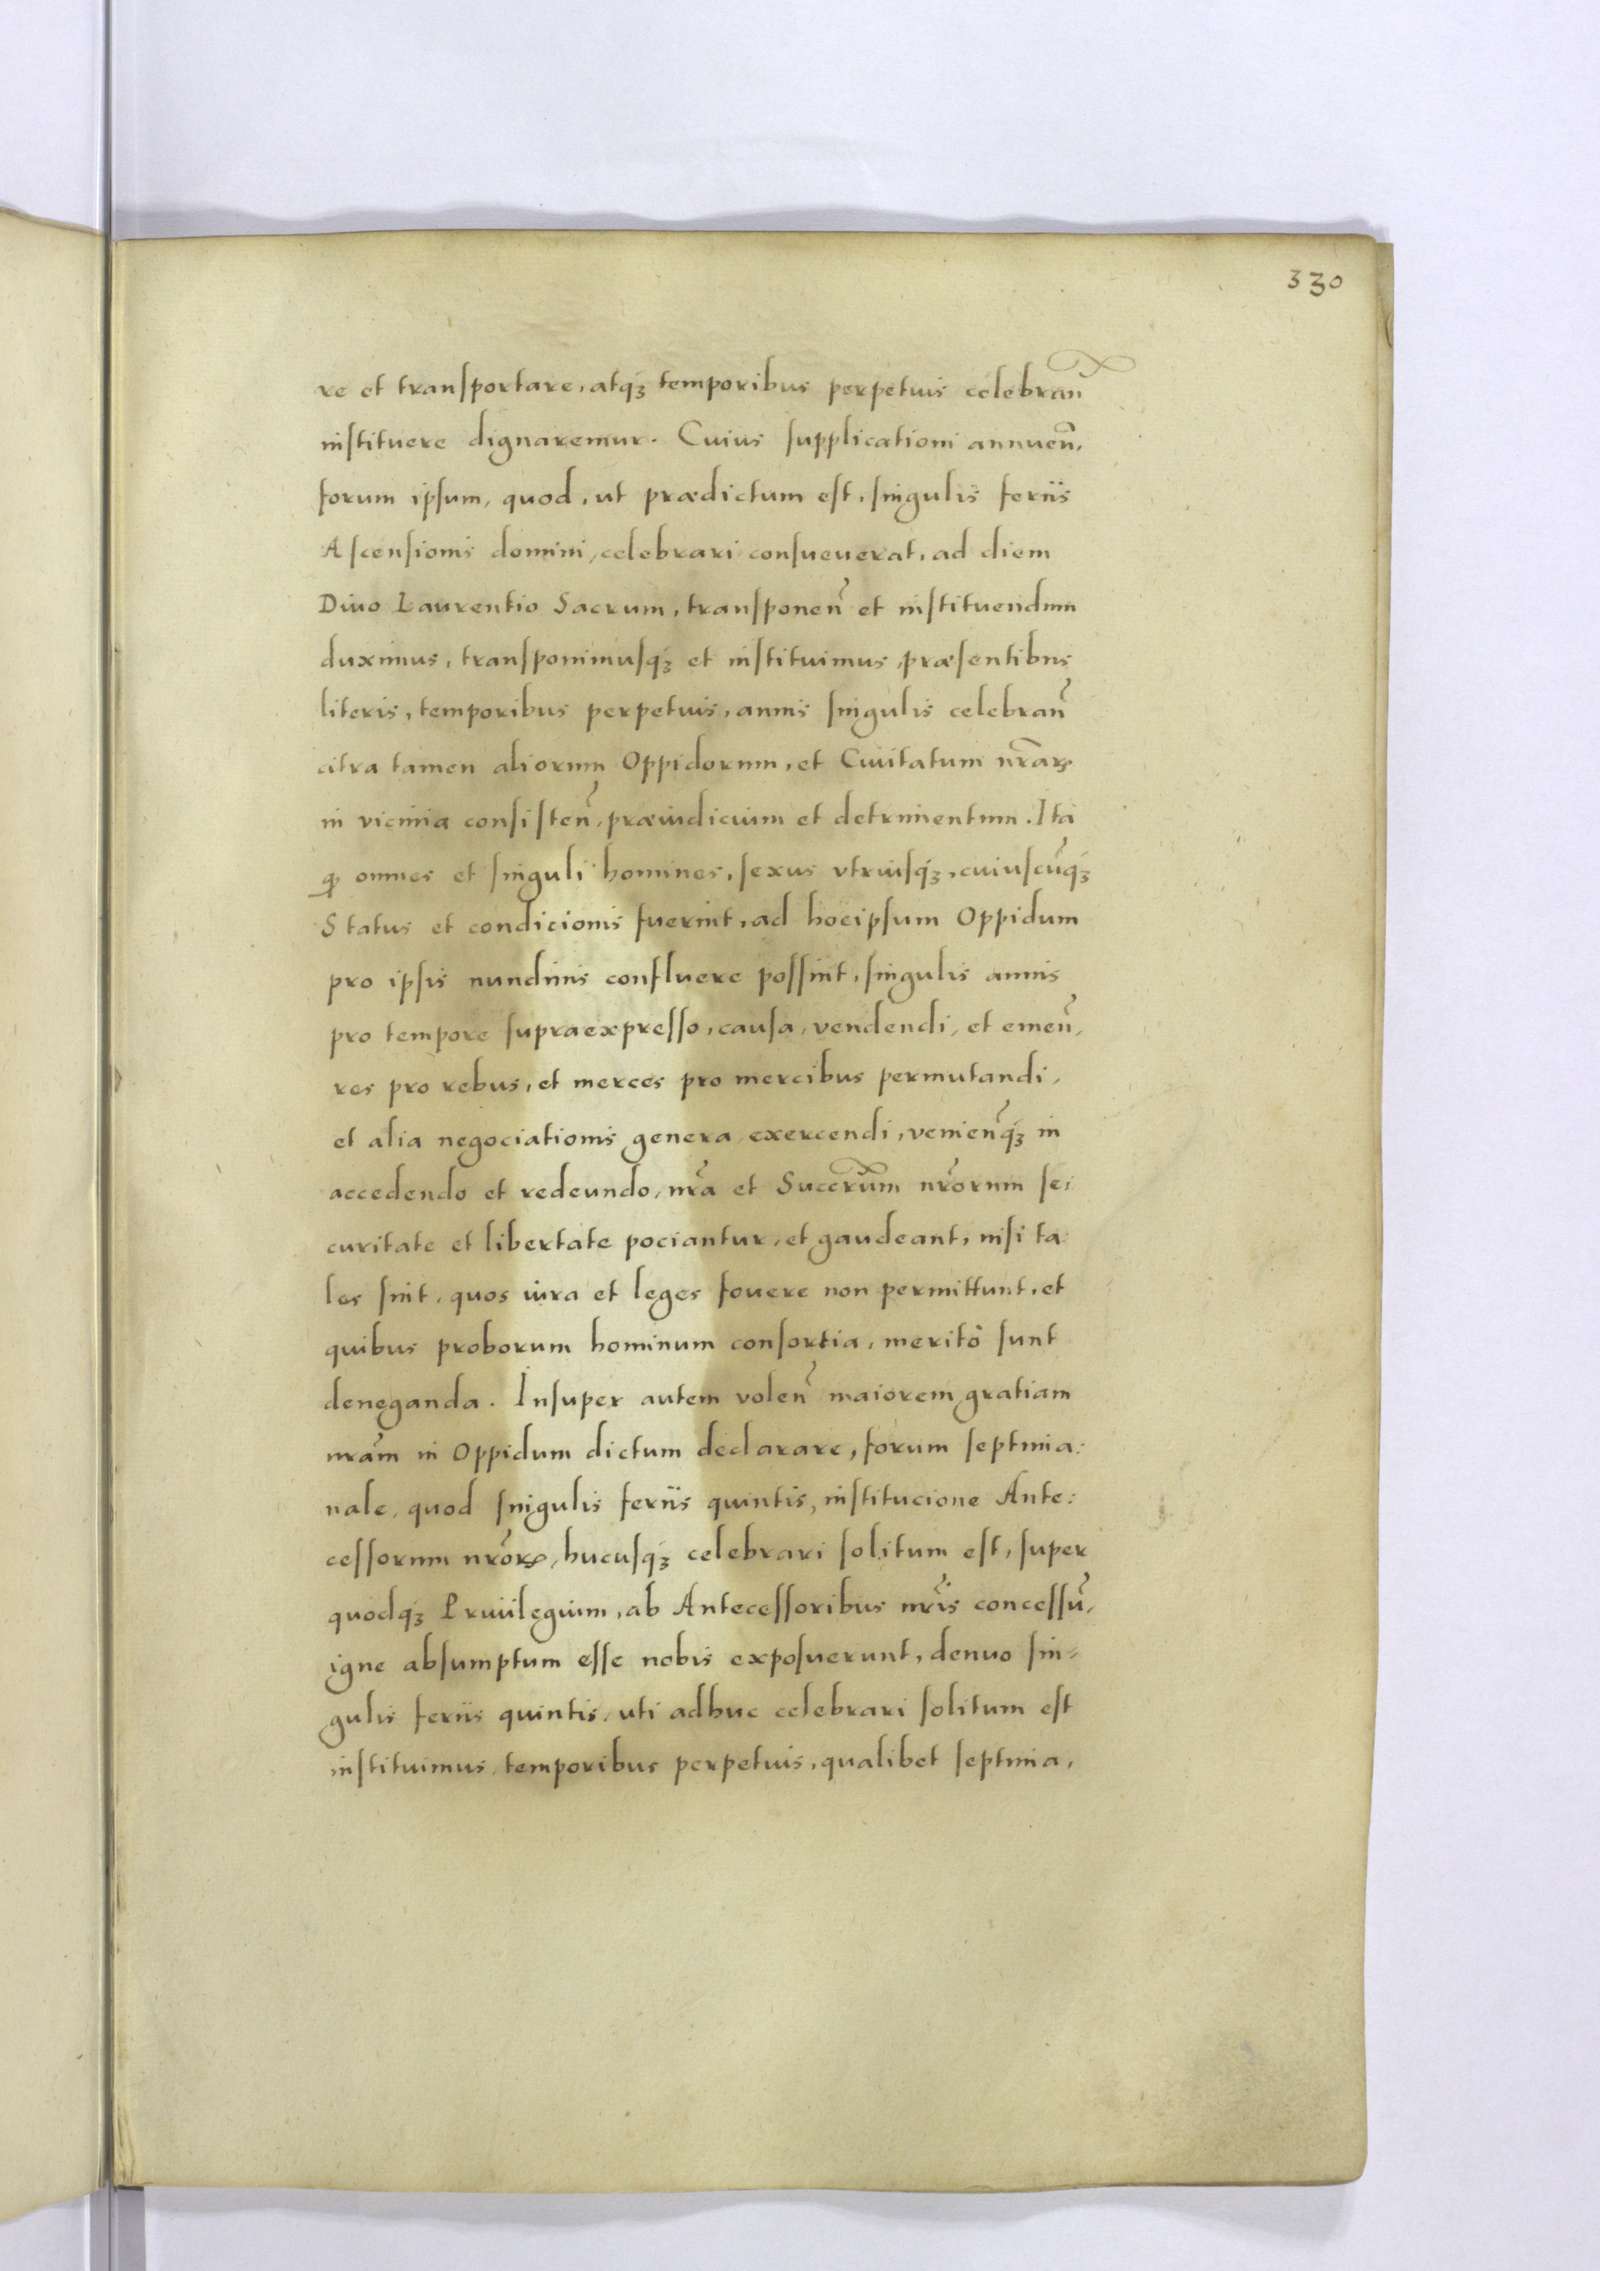 330
re et transportare, atqꝫ temporibus perpetuis celebran̄
instituere dignaremur. Cuius supplicationi annuen̄,
forum ipsum, quod, ut prædictum est, singulis feriis
Ascensionis domini, celebrari consueuerat, ad diem
Diuo Laurentio Sacrum, transponen̄ et instituendum
duximus, transponimusqꝫ et instituimus, præsentibus
literis, temporibus perpetuis, annis singulis celebran̄
citra tamen aliorum Oppidorum, et Ciuitatum nr̄arꝝ
in vicinia consisten̄, præiudicium et detrimentum. Ita
ꝙ omnes et singuli homines, sexus vtriusqꝫ, cuiuscūqꝫ
Status et condicionis fuerint, ad hocipsum Oppidum
pro ipsis nundinis confluere possint, singulis annis
pro tempore supraexpresso, causa, vendendi, et emen̄,
res pro rebus, et merces pro mercibus permutandi,
et alia negociationis genera exercendi, venien̄qꝫ in
accedendo et redeundo, nr̄a et Succr̄um nr̄orum se:
curitate et libertate pociantur, et gaudeant, nisi ta
les sint, quos iura et leges fouere non permittunt, et
quibus proborum hominum consortia, meritò sunt
deneganda. Insuper autem volen̄ maiorem gratiam
nr̄am in Oppidum dictum declarare, forum septima:
nale, quod singulis feriis quintis, institucione Ante:
cessorum nr̄orꝝ, hucusqꝫ celebrari solitum est, super
quodqꝫ Priuilegium, ab Antecessoribus nr̄is concessū,
igne absumptum esse nobis exposuerunt, denuo sin-
gulis feriis quintis, uti adhuc celebrari solitum est
instituimus, temporibus perpetuis, qualibet septima,